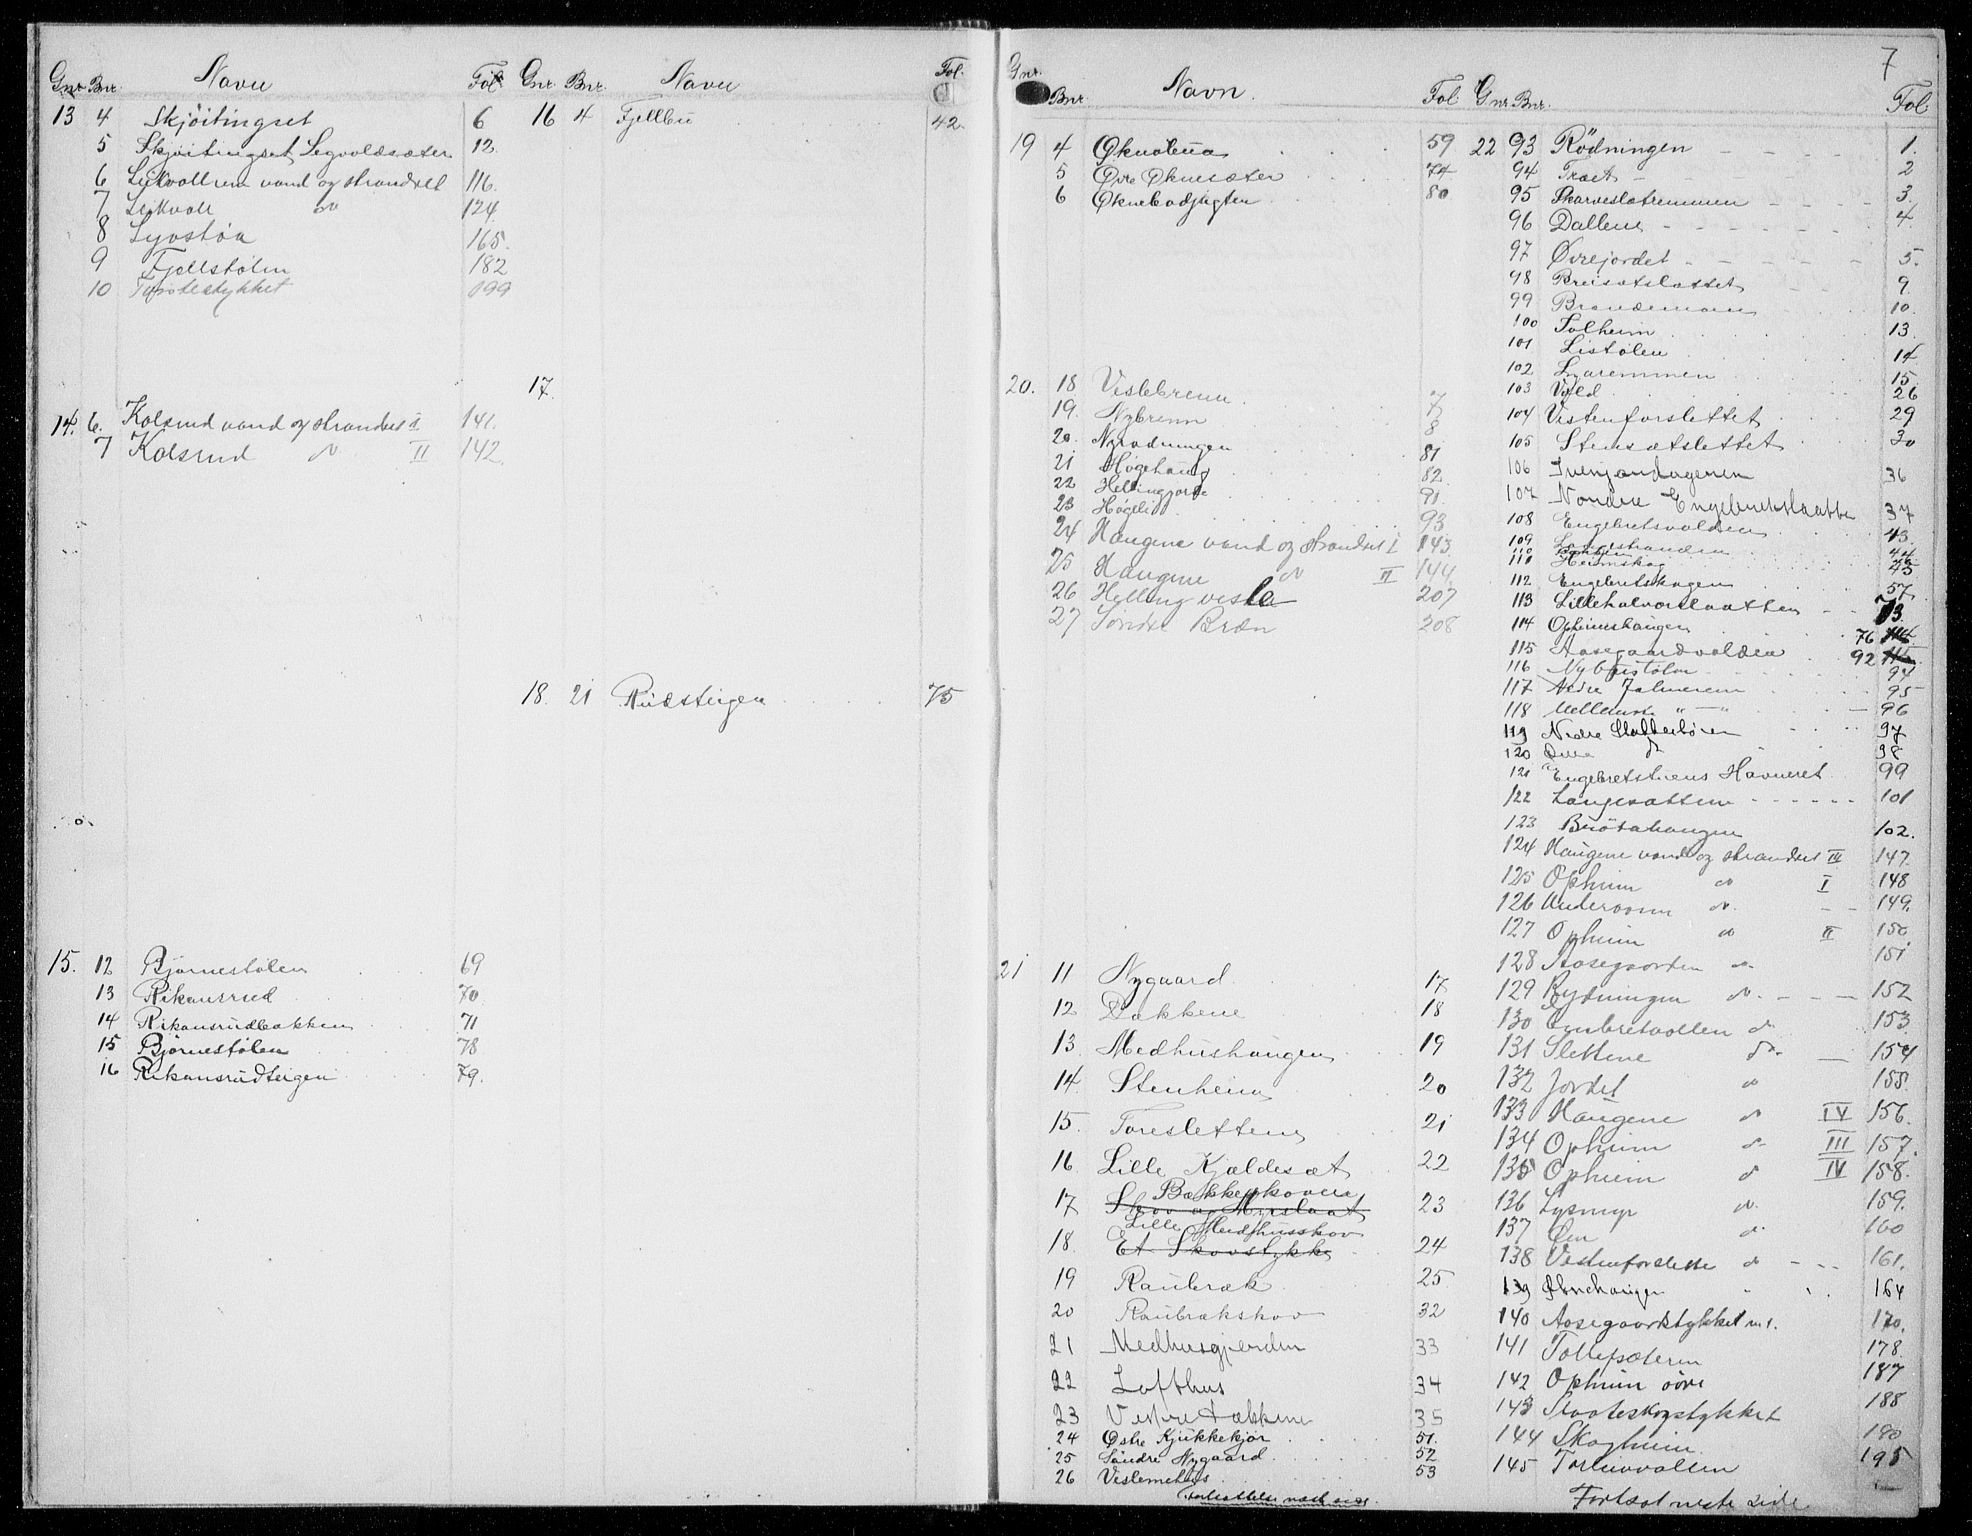 Gnr. Bnr. Navn Fol.
13 4 Skjöitingset 6
5 Skjöitingset Segvoldsæter 12.
6 vand og strandret 116.
7 do 124
8 165.
9 Fjellstølen 182
10 199
14. 6. Kolsrud vand og strandret I 141.
7 Kolsrud do II 142.
15. 12 Bjørnestølen 69
13 Rikansrud 70
14 Rikansrudbakken 71
15 Bjørnestølen 78
16 Rikansrudteigen 79.
Gnr. Bnr. Navn Fol.
16 4 Fjellbu 42.
17.
18. 21 Rudsteigen 75
7
Gnr. Bnr. Navn. Fol
19 4 59
5 Øvre Øknesæter 74
6 80
20. 18 Veslebrenn 7
19. Nybrenn 8
20 Nyrødningen 81
21 Høgehaug 82
22 Hellingjorde 91.
23 Høgeli 93
24 Haugene vand og strandret I 143.
25 Haugene do II 144
26 Helling vesle 207
27 Søndre Bræn 208
21 11 Nygaard 17
12 Bakkene 18
13. Medhushaugen 19
14. Stenheim 20
15. Toresletten 21
16 Lille Kjældesæt 22
Bækkeskoven
17 Skov og Myrslaat 23
Lille Medhusskov
18. Et Skovstykke 24
19 Raubræk 25
20 Raubrækskov 32
21 Medhusgjerden 33
22 Lofthus 34
23 Vestre Bækkene 35
24 Østre Kjukkekjør 51.
25 Søndre Nygaard 52
26 Veslemehus 53
Fortsættelse næste side.
Gnr. Bnr. Fol.
22 93 Rödningen 1.
94 Træet 2
95 3.
96 Dallene 4.
97 Øvrejordet 5.
98 Breisætslættet 9
99 Brændemoen 10
100 Solheim 13.
101 Listølen 14
102 15.
103 Vold 26
104 Vestenforslettet 29
105 Stensætslettet 30
106 36
107 Nordre Engebretslaatte 37
108 Engebretsvolden 43.
109 Langestranden 44
110
111 Heimskog 45
112 Engebretskogen 57
113 Lillehalvorslaatten 73.
114 Opheimshaugen 76
115 Aasegaardvolden 92
116 Nybustølen 94
117 Nedre Jalmerem 95
118 Mellemste " — " 96
119 Nedre 97
120 Øvre do 98
121 Engebretstuens Havneret 99
122 Langesætten 101
123 Brøtahaugen 102.
124 Haugene vand og strandret III 147.
125 Opheim do I 148
126 do 149.
127 Opheim do II 150
128 Aasegaarden do 151
129 Rydningen do 152
130 Embretvollen do 153.
131 Slettene do 154
132 Jordet do 155.
133 Haugene do IV 156.
134 Opheim do III 157.
135 Opheim do IV 158.
136 Lysmyr do 159.
137 Øen do 160
138 Vestenforslette do 161.
139 164
140 Aasegaardstykket n. 1. 170.
141 Tollefsæteren 178.
142 Opheim øvre 187
143 188
144 Skogheim. 190
145 195
Fortsat neste side